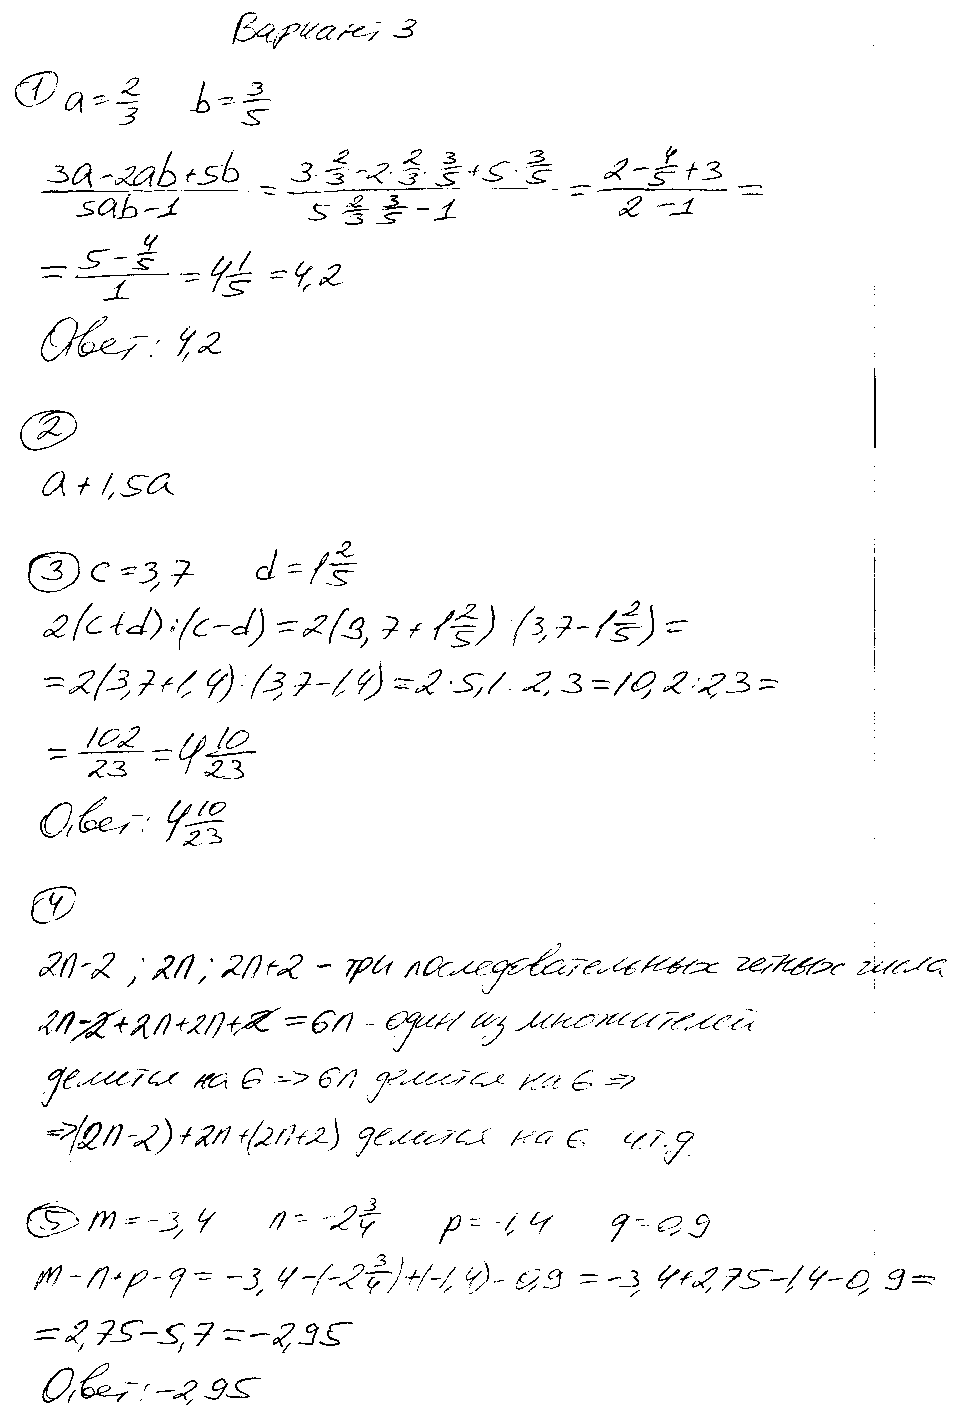 Вариант 3
① a = 2/3 b = 3/5
(3a-2ab+5b)/(5ab-1) = (3·2/3-2·2/3·3/5+5·3/5)/(5 2/3 3/5 -1) = (2-4/5+3)/(2-1) =
= (5-4/5)/1 = 4 1/5 = 4,2
Ответ: 4,2
②
a + 1,5a
③ c = 3,7 d = 1 2/5
2(c+d):(c-d) = 2(3,7+1 2/5):(3,7-1 2/5) =
= 2(3,7+1,4):(3,7-1,4) = 2·5,1:2,3 = 10,2:2,3 =
= 102/23 = 4 10/23
Ответ: 4 10/23
④
2n-2; 2n; 2n+2 - три последовательных четных числа
2n-2+2n+2n+2 = 6n - один из множителей
делится на 6 => 6n делится на 6 =>
=> (2n-2)+2n+(2n+2) делится на 6 ч.т.д.
⑤ m = -3,4 n = -2 3/4 p = -1,4 q = 0,9
m-n+p-q = -3,4-(-2 3/4)+(-1,4)-0,9 = -3,4+2,75-1,4-0,9 =
= 2,75-5,7 = -2,95
Ответ: -2,95